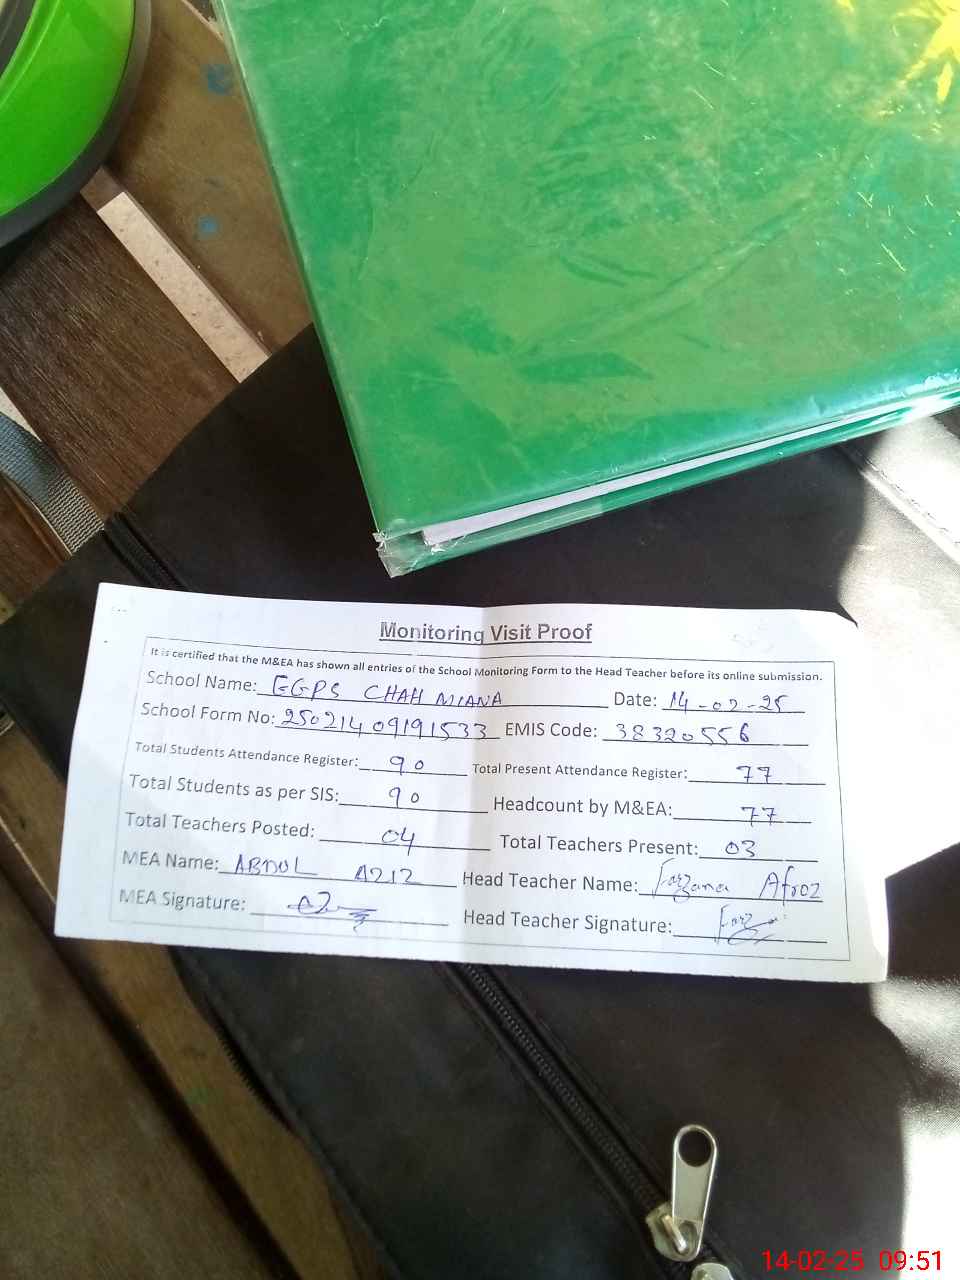 Monitoring Visit Proof
It is certified that the M&EA has shown all entries of the School Monitoring Form to the Head Teacher before its online submission.
School Name: GGPS CHAH MIANA Date: 14-02-25
School Form No: 25021409191533 EMIS Code: 38320556
Total Students Attendance Register: 90 Total Present Attendance Register: 77
Total Students as per SIS: 90 Headcount by M&EA: 77
Total Teachers Posted: 04 Total Teachers Present: 03
MEA Name: ABDUL AZIZ Head Teacher Name: Farzana Afroz
MEA Signature: Head Teacher Signature:
14-02-25 09:51